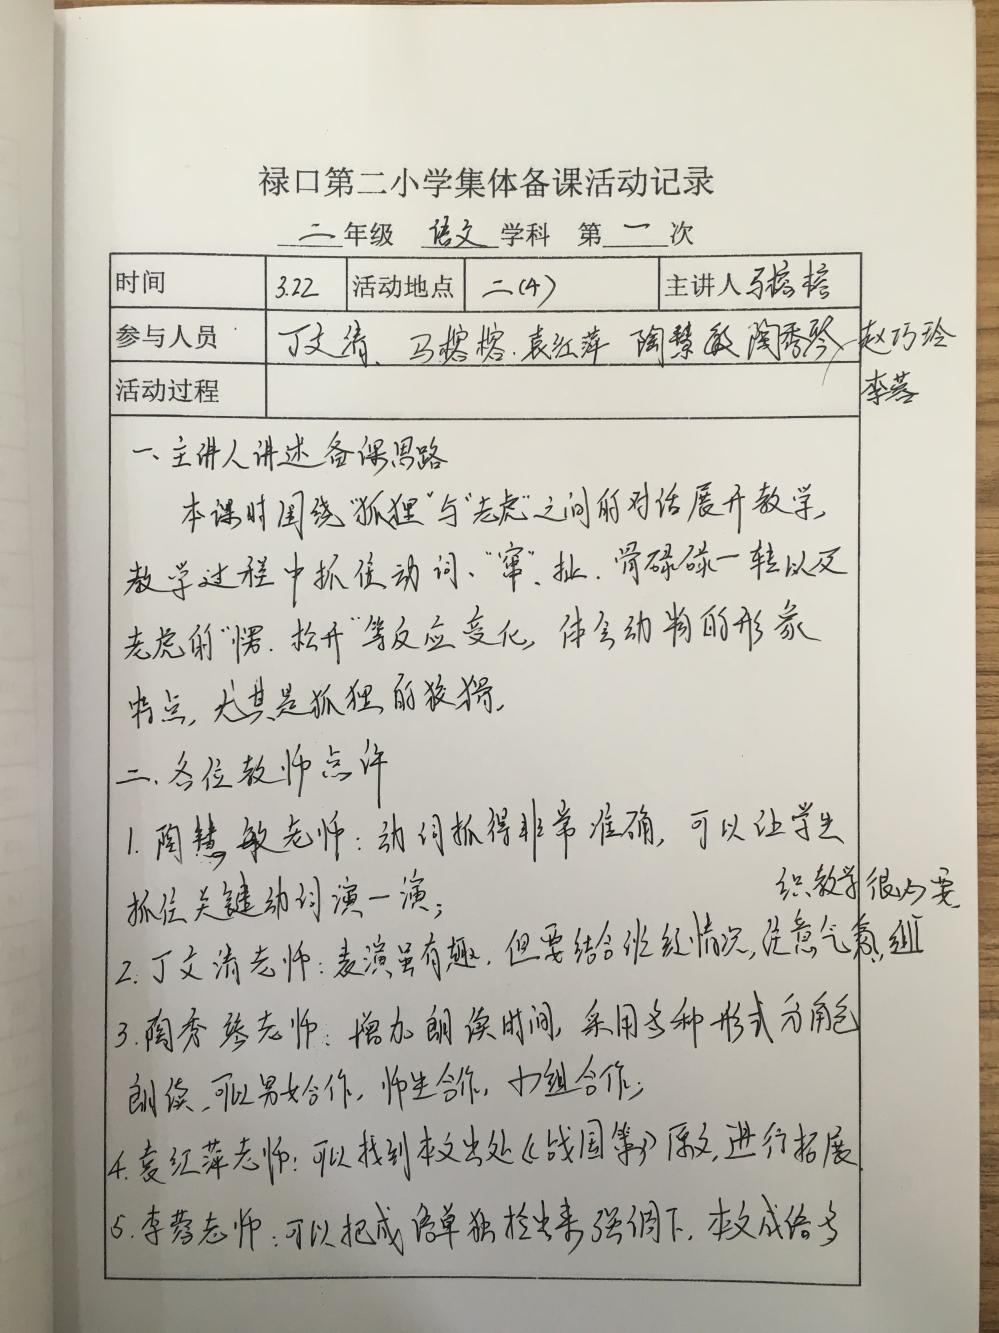 禄口第二小学集体备课活动记录
二年级 语文学科 第一次
时间 3.22 活动地点 二(4) 主讲人马榕榕
参与人员 丁文清、马榕榕.袁红萍 陶慧敏 陶秀琴 赵巧玲
李蓉
活动过程
一、主讲人讲述备课思路
本课时围绕“狐狸”与“老虎”之间的对话展开教学,
教学过程中抓住动词、“窜”、扯、骨碌碌一转以及
老虎的“愣、松开”等反应变化,体会动物的形象
特点,尤其是狐狸的狡猾.
二、各位教师点评
1.陶慧敏老师:动词抓得非常准确,可以让学生
抓住关键动词演一演;
2.丁文清老师:表演虽有趣,但要结合班级情况,注意气氛,组
织教学很必要
3.陶秀琴老师:增加朗读时间,采用多种形式分角色
朗读、可以男女合作,师生合作,小组合作;
4.袁红萍老师:可以找到本文出处《战国策》原文,进行拓展
5.李蓉老师:可以把成语单独拎出来强调下,本文成语多